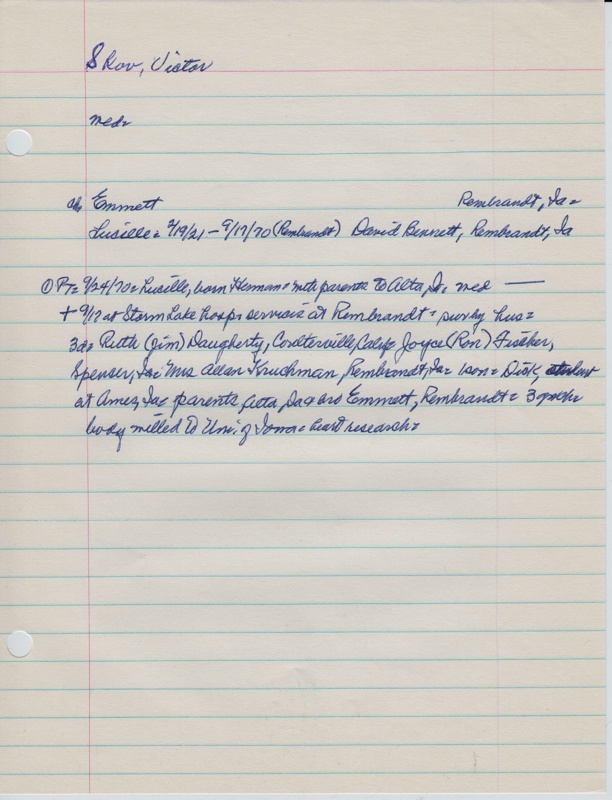 Skov, Victor
med=
c/o Emmett Rembrandt, Ia=
Lucille= 2/19/21 - 9/17/70 (Rembrandt) David Bennett, Rembrandt, Ia
① PT= 9/24/70= Lucille, born Hernan= with parents to Alta, Ia= med —
+ 9/17 at Storm Lake hosp= services at Rembrandt= surv by hus=
3 d= Ruth (Jim) Daugherty, Coulterville, Calif= Joyce (Ron) Fischer,
Spenser, Ia= Mrs Allan Kruchman, Rembrandt, Ia= 1 son= Dick, student
at Ames, Ia= parents, Alta, Ia= bro Emmett, Rembrandt= 3 grch=
body willed to Uni. of Iowa= heart research=